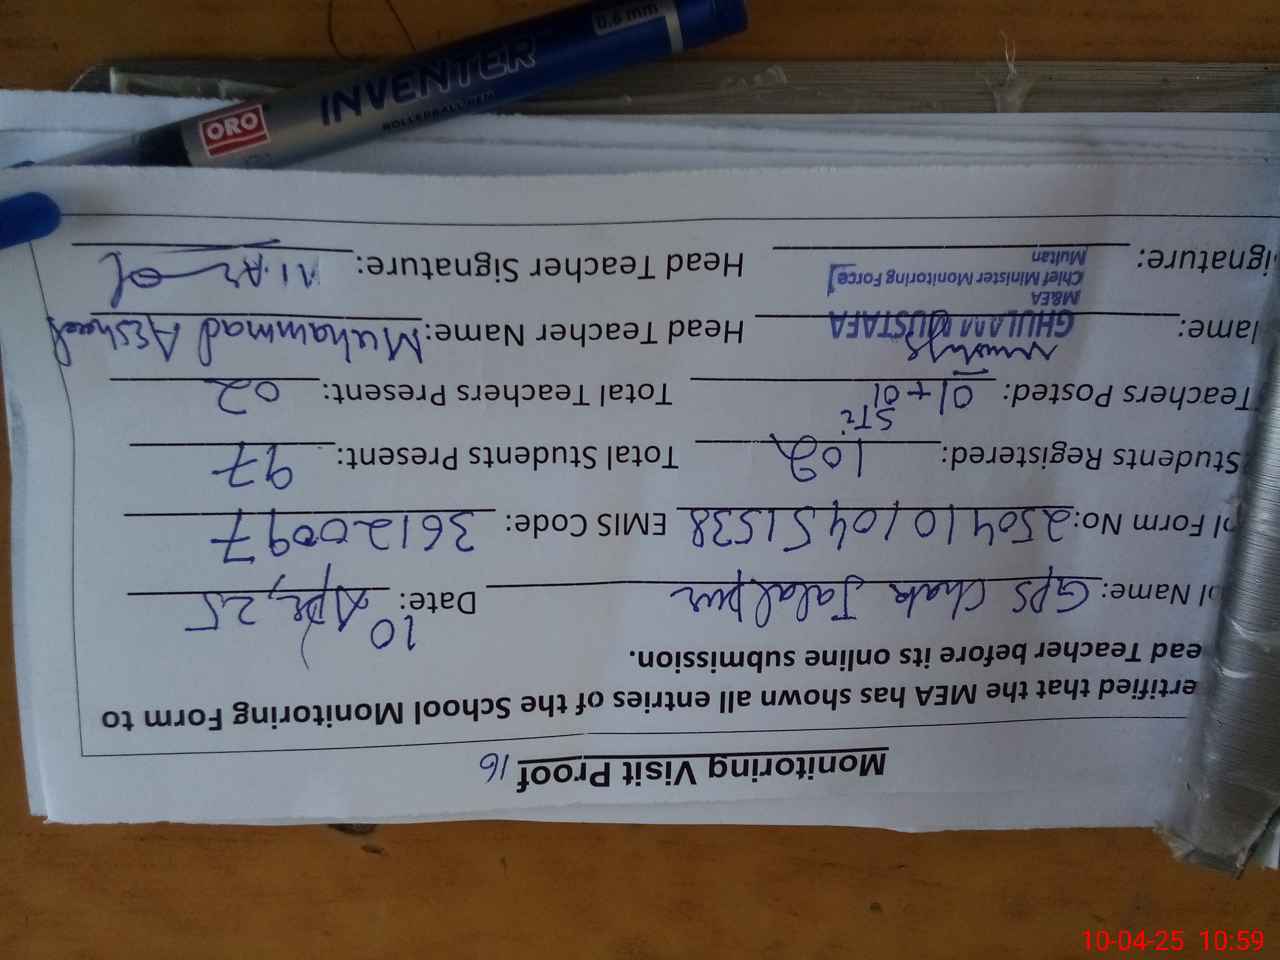 Monitoring Visit Proof 16
ertified that the MEA has shown all entries of the School Monitoring Form to
ead Teacher before its online submission.
ol Name: GPS Chak Jalalpur Date: 10 Apr, 25
ol Form No: 2504101045 1538 EMIS Code: 36120097
Students Registered: 102 Total Students Present: 97
Teachers Posted: 01 + 01 STi Total Teachers Present: 02
ame: GHULAM MUSTAFA Head Teacher Name: Muhammad Asshraf
M&EA
Chief Minister Monitoring Force
Multan
ignature: Head Teacher Signature:
ORO
INVENTER
ROLLERBALL PEN
0.6 mm
10-04-25 10:59